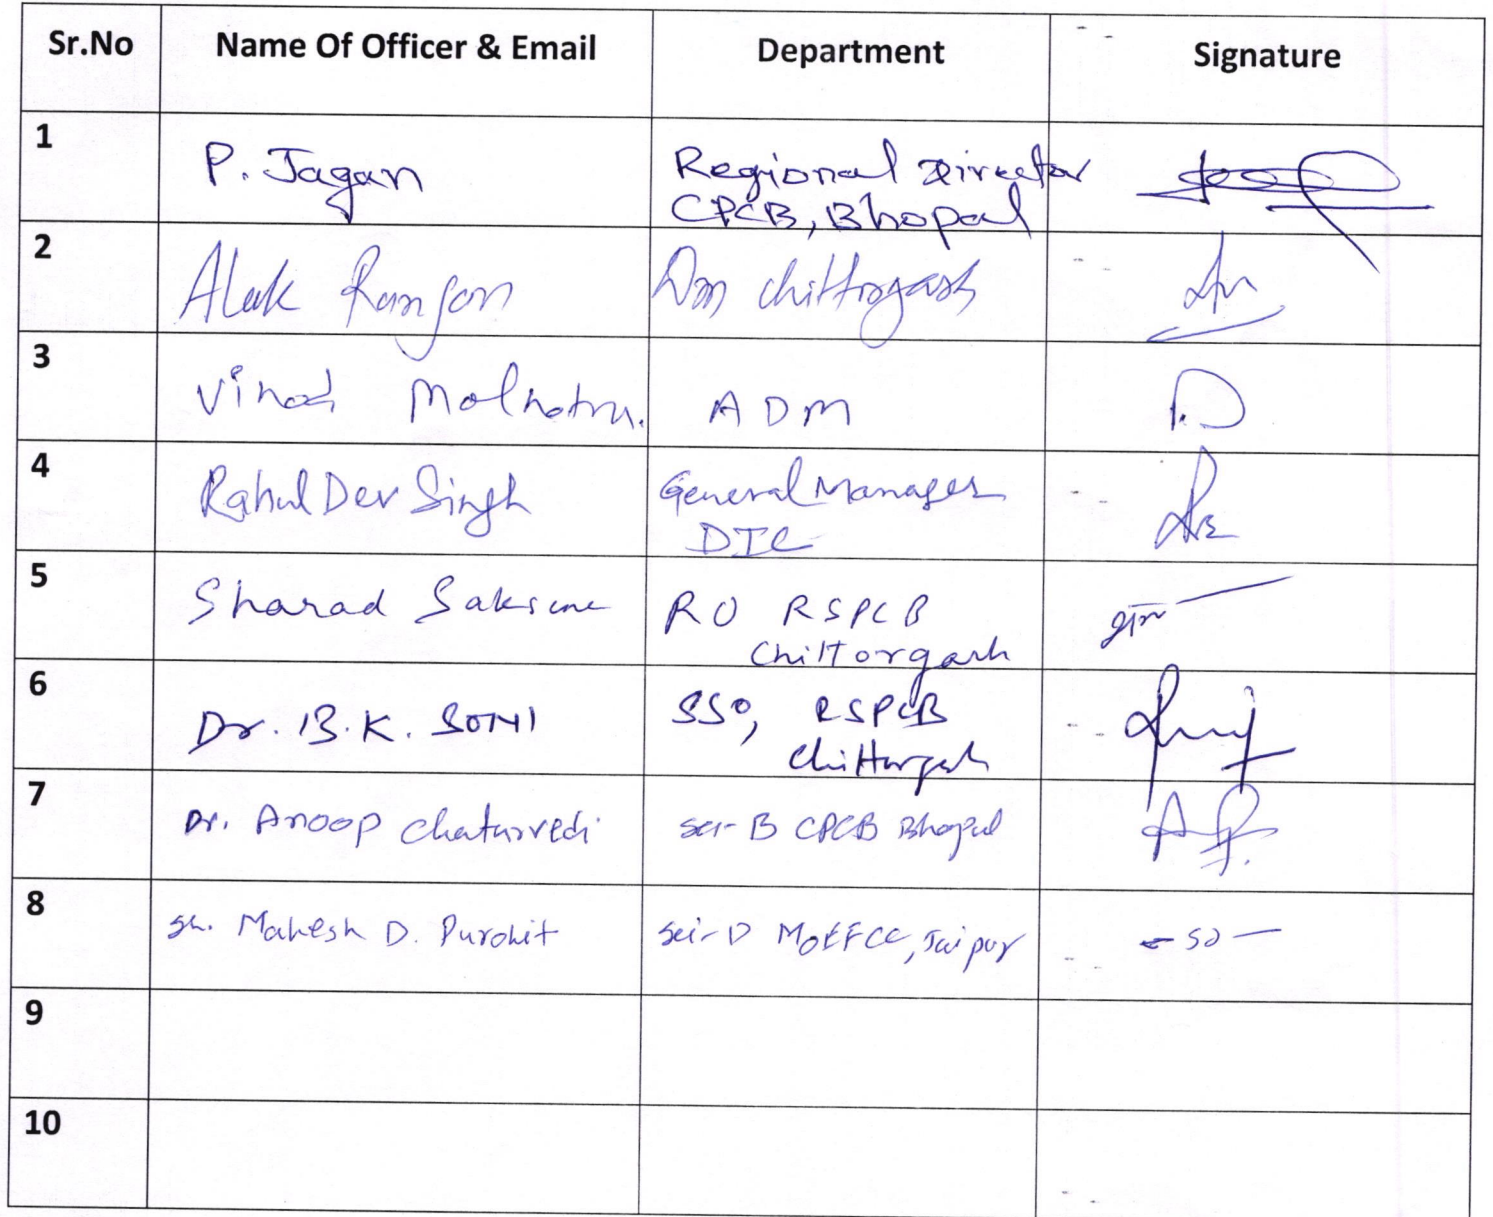 Sr.No Name Of Officer & Email Department Signature
1 P. Jagan Regional Director
CPCB, Bhopal
2 Alok Ranjan Dm chittorgarh
3 Vinod Malhotra. ADM
4 Rahul Dev Singh General Manager
DIC
5 Sharad Saksena RO RSPCB
Chittorgarh
6 Dr. B.K. SONI SSO, RSPCB
Chittorgarh
7 Dr. Anoop Chaturvedi sci-B CPCB Bhopal
8 Sh. Mahesh D. Purohit Sci-D MoEFCC, Jaipur - SD -
9
10